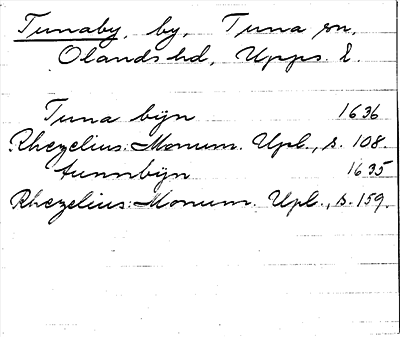 Tunaby, by, Tuna sn,
Olands hd, Upps. l.
Tuna bijn 1636
Rhezelius: Monum. Upl., s. 108.
tunnbijn 1635
Rhezelius: Monum. Upl., s. 159.